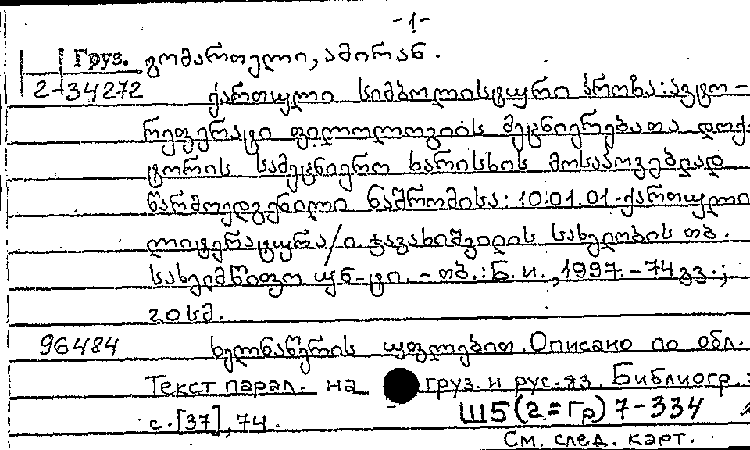 -1-
Груз. გომართელი, ამირან.
2-34272 ქართული სიმბოლისტური პროზა: ავტო-
რეფერატი ფილოლოგიის მეცნიერებათა დოქ-
ტორის სამეცნიერო ხარისხის მოსაპოვებლად
წარმოდგენილი ნაშრომისა: 10.01.01-ქართული
ლიტერატურა/ი. ჯავახიშვილის სახელობის თბ.
სახელმწიფო უნ-ტი. - თბ.: Б. и., 1997. - 74 გვ.;
20 სმ.
96484 ხელნაწერის უფლებით. Описано по обл.
Текст парал. на груз. и рус. яз. Библиогр.:
с. [37], 74.
Ш5(2=Гр)7-334
См. след. карт.